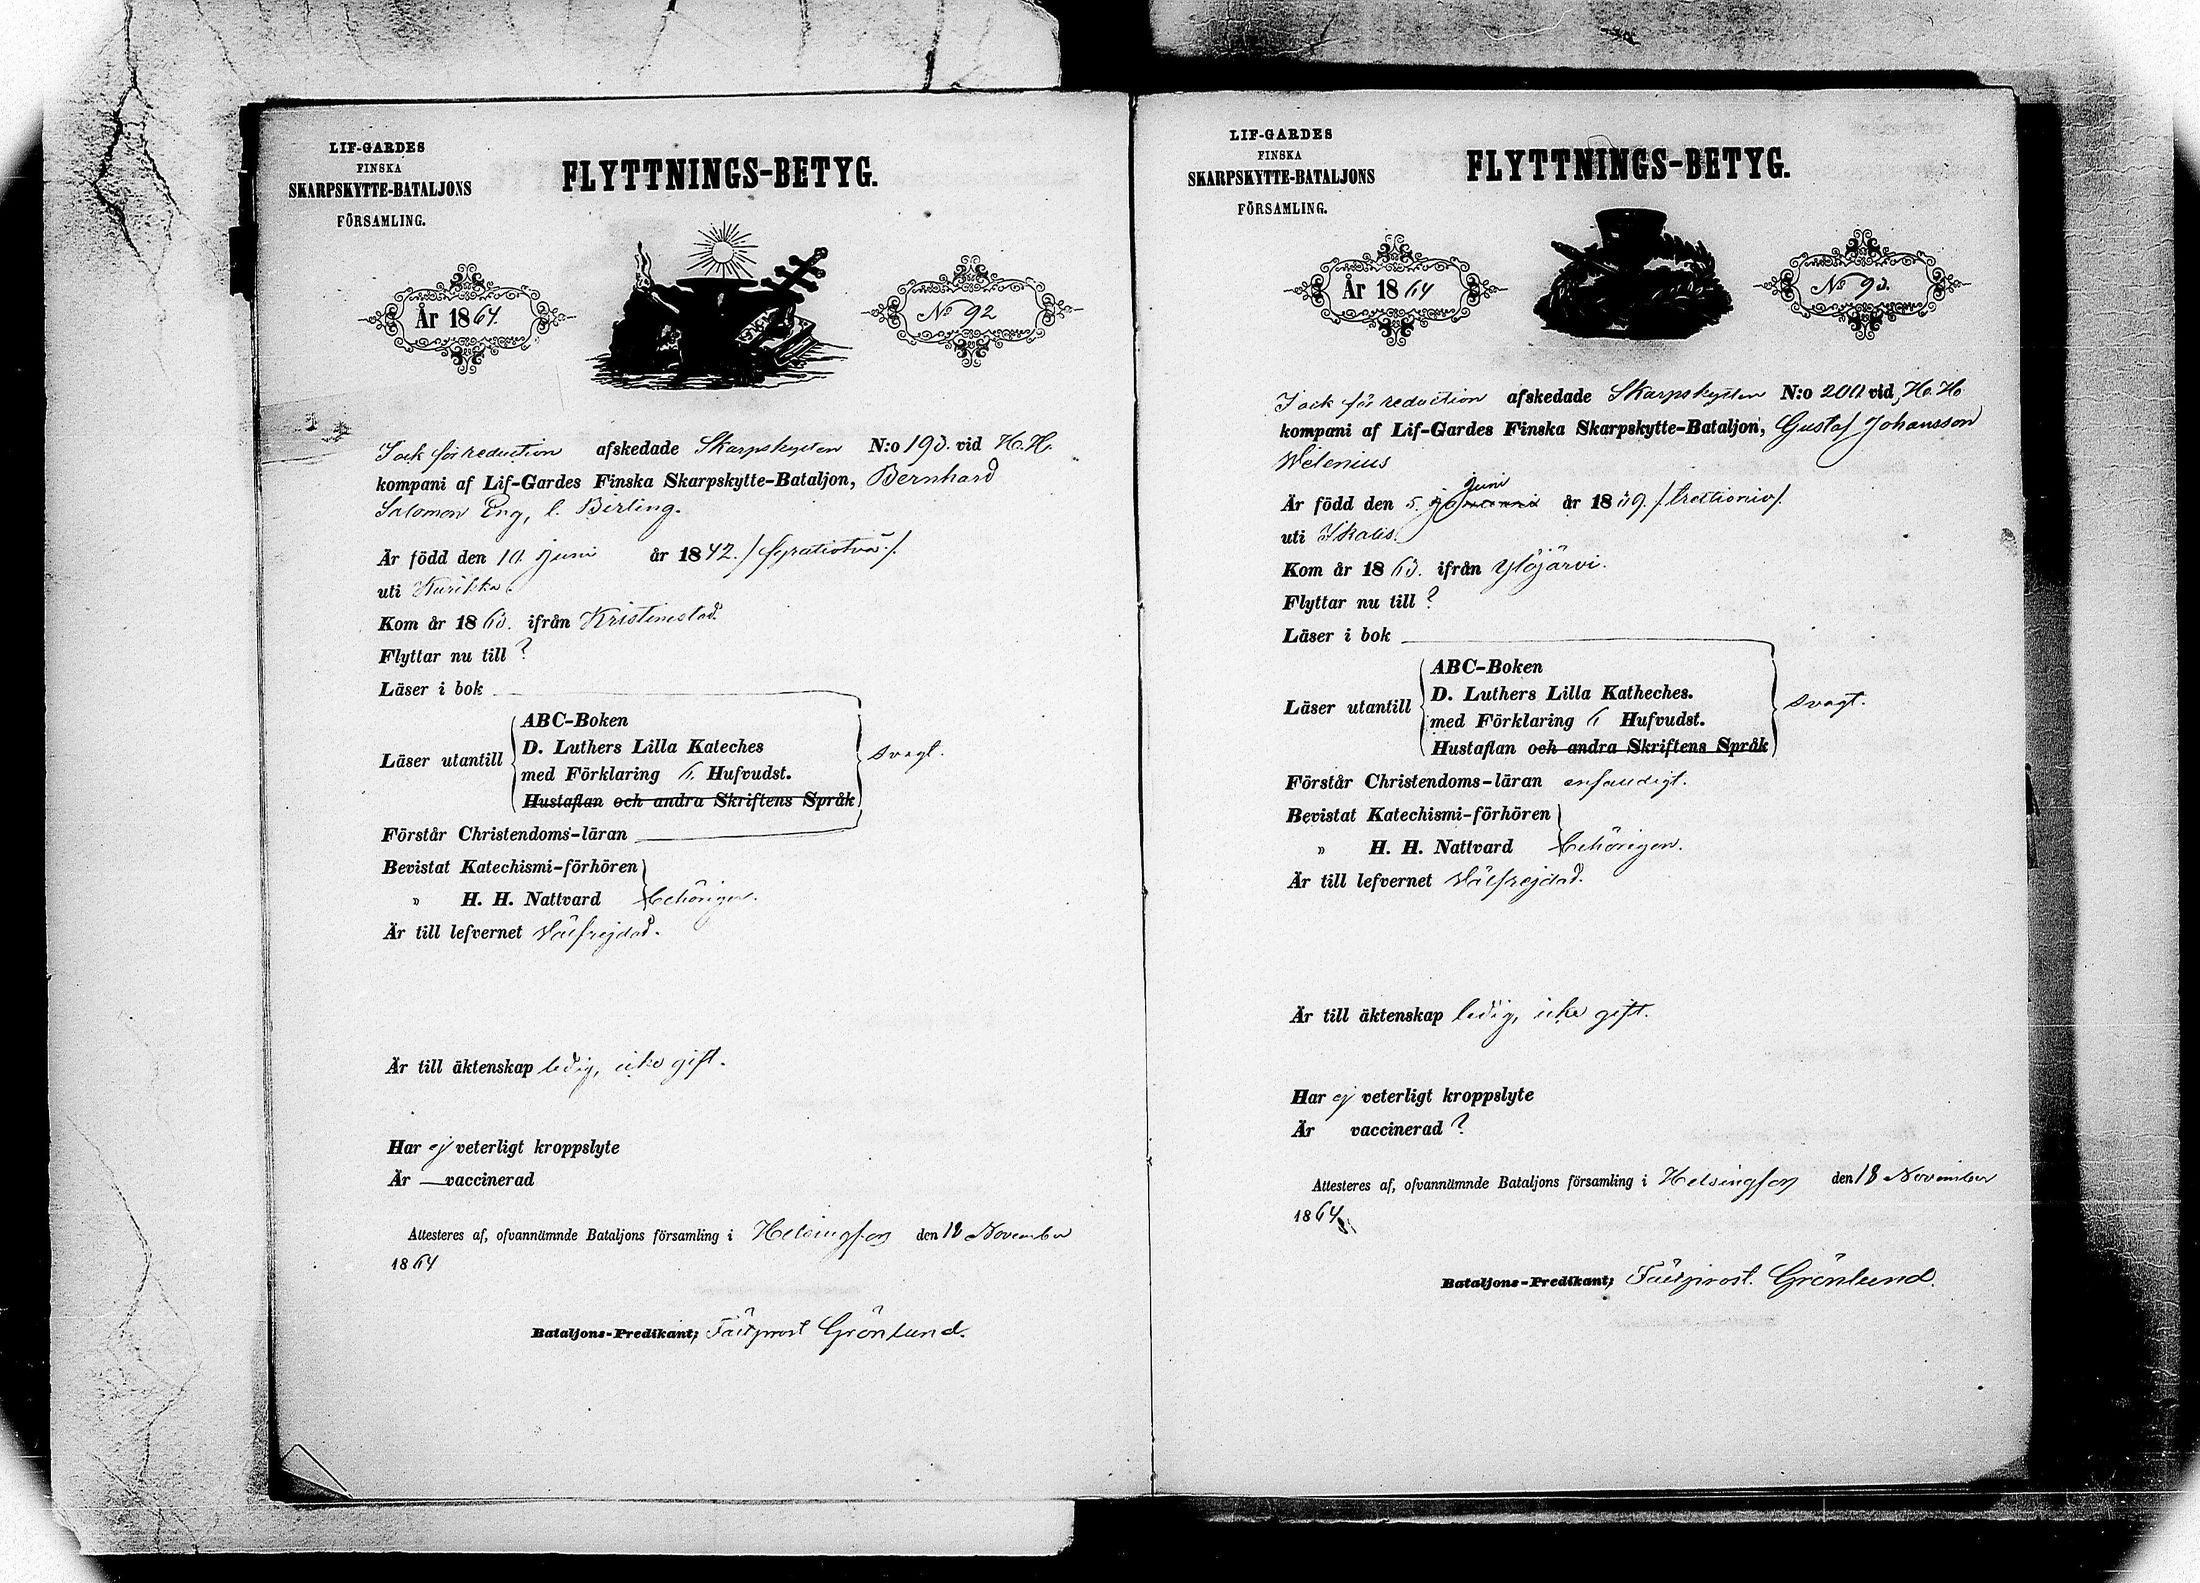 LIF-GARDES
FINSKA
SKARPSKYTTE-BATALJONS
FÖRSAMLING.
FLYTTNINGS-BETYG.
År 1864.
No 92
afskedade Skarpskytten N:o 193. vid H. H.
kompani af Lif-Gardes Finska Skarpskytte-Bataljon, Bernhard
Salomon Eng, l. Birling.
Är född den 10. juni år 1842. /fyratiotvå./
uti Kurikka.
Kom år 1863. ifrån Kristinestad.
Flyttar nu till ?
Läser i bok
ABC-Boken
Läser utantill D. Luthers Lilla Kateches svagt.
med Förklaring 6. Hufvudst.
Hustaflan och andra Skriftens Språk
Förstår Christendoms-läran
Bevistat Katechismi-förhören
" H. H. Nattvard behörigen.
Är till lefvernet Välfrejdad.
Är till äktenskap ledig, icke gift.
Har ej veterligt kroppslyte
Är — vaccinerad
Attesteres af, ofvannämnde Bataljons församling i Helsingfors den 18 November
1864
Bataljons-Predikant; Fältprost Grönlund.
LIF-GARDES
FINSKA
SKARPSKYTTE-BATALJONS
FÖRSAMLING.
FLYTTNINGS-BETYG.
År 1864
No 93.
afskedade Skarpskytten N:o 200 vid H. H.
kompani af Lif-Gardes Finska Skarpskytte-Bataljon, Gustaf Johansson
Welenius
juni
Är född den 5. januari år 1839. /trettionio/.
uti Ikalis.
Kom år 1863. ifrån Ylöjärvi.
Flyttar nu till ?
Läser i bok
ABC-Boken
Läser utantill D. Luthers Lilla Katheches. svagt.
med Förklaring 6 Hufvudst.
Hustaflan och andra Skriftens Språk
Förstår Christendoms-läran enfaldigt.
Bevistat Katechismi-förhören
" H. H. Nattvard behörigen.
Är till lefvernet Välfrejdad.
Är till äktenskap ledig, icke gift.
Har ej veterligt kroppslyte
Är vaccinerad ?
Attesteres af, ofvannämnde Bataljons församling i Helsingfors den 18 November
1864
Bataljons-Predikant; Fältprost. Grönlund.